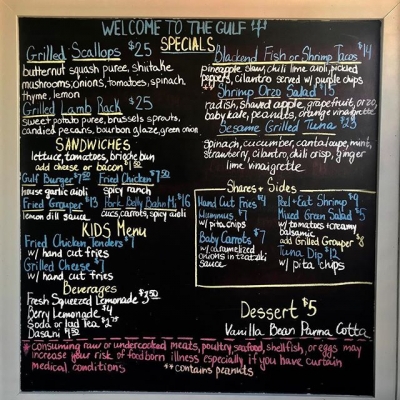 WELCOME TO THE GULF
SPECIALS
Grilled Scallops $25
butternut squash puree, shiitake
mushrooms, onions, tomatoes, spinach,
thyme, lemon
Grilled Lamb Rack $25
sweet potato puree, brussels sprouts,
candied pecans, bourbon glaze, green onion
SANDWICHES
lettuce, tomatoes, brioche bun
add cheese or bacon $1.50
Gulf Burger $7.50 Fried Chicken $7.50
house garlic aioli spicy ranch
Fried Grouper $13 Pork Belly Bahn Mi $16
lemon dill sauce cucs, carrots, spicy aioli
KIDS Menu
Fried Chicken Tenders $7
w/ hand cut fries
Grilled Cheese
w/ hand cut fries
Beverages
Fresh Squeezed Lemonade $3.50
Berry Lemonade $4
Soda or Iced Tea $2.75
Dasani
Blackend Fish or Shrimp Tacos $14
pineapple slaw, chili lime aioli, pickled
peppers, cilantro served w/ purple chips
Shrimp Orzo Salad $15
radish, shaved apple, grapefruit, orzo,
baby kale, pecanuts, orange vinaigrette
Sesame Grilled Tuna $23
spinach, cucumber, cantaloupe, mint,
strawberry, cilantro, chili crisp, ginger
lime vinaigrette
Shares + Sides
Hand Cut Fries $4
Hummus $7
w/ pita chips
Baby Carrots $7
w/ caramelized
onions in tzatziki
sauce
Peel + Eat Shrimp
Mixed Green Salad $5
w/ tomatoes + creamy
balsamic
add Grilled Grouper $8
Tuna Dip $12
w/ pita chips
Dessert $5
Vanilla Bean Panna Cotta
* consuming raw or undercooked meats, poultry, seafood, shellfish, or eggs may
increase your risk of foodborn illness especially if you have curtain
medical conditions
**contains peanuts